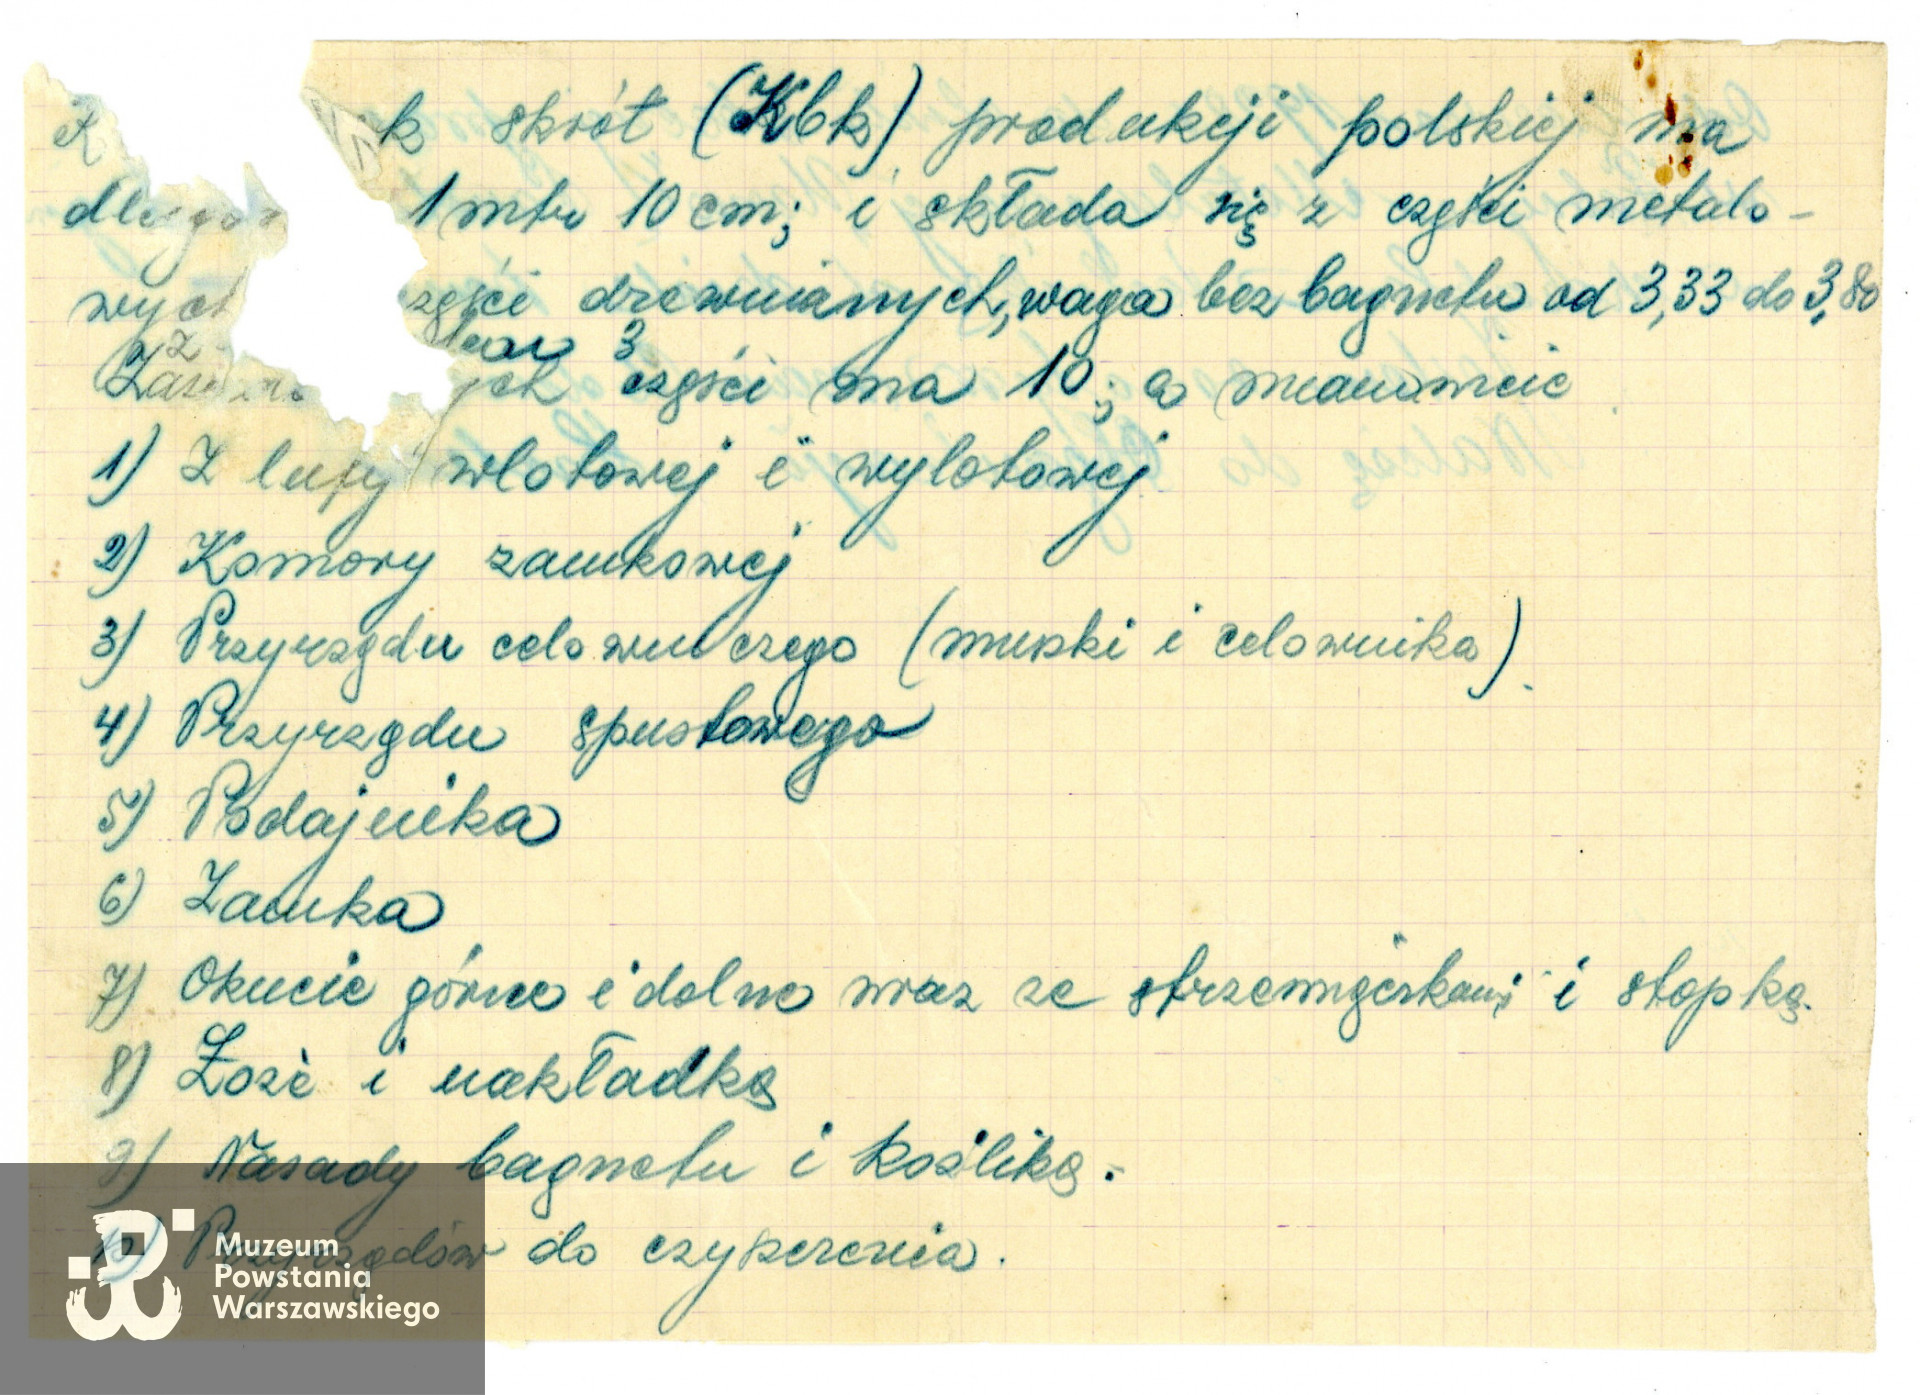 k skrót (Kbk) produkcji polskiej ma
długo 1 mtr 10 cm; i składa się z części metalo-
wych zęści drewnianych, waga bez bagnetu od 3,33 do 3,80
z 3
Zas ych części ma 10; a mianowicie
1) Z lufy wlotowej i wylotowej
2) Komory zamkowej
3) Przyrządu celowniczego (muszki i celownika).
4) Przyrządu spustowego
5) Podajnika
6) Zamka
7) Okucie górne i dolne wraz ze strzemiączkami i stopką.
8) Łoże i nakładką
9) Nasady bagnetu i koślika.
10) Przyrządów do czyszczenia.
Muzeum
Powstania
Warszawskiego